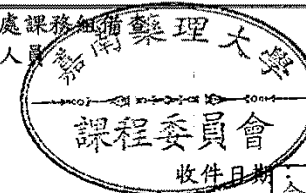 處課務組備查
人員
嘉南藥理大學
課程委員會
收件日期：